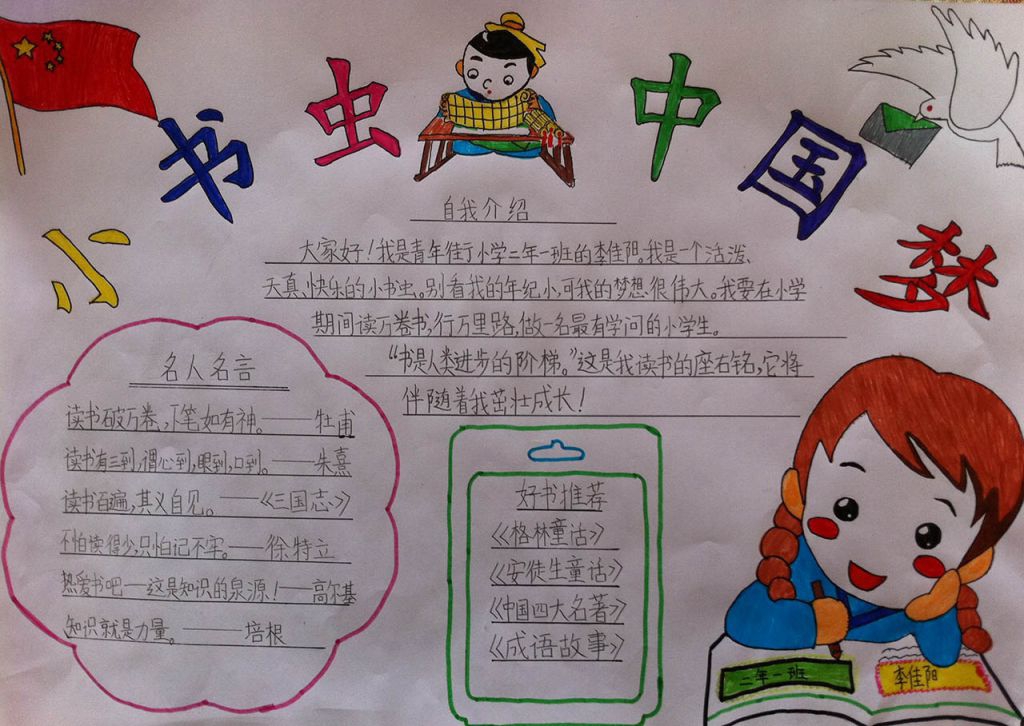 小书虫中国梦
自我介绍
大家好！我是青年街小学二年一班的李佳阳。我是一个活泼、
天真、快乐的小书虫。别看我的年纪小，可我的梦想很伟大。我要在小学
期间读万卷书，行万里路，做一名最有学问的小学生。
“书是人类进步的阶梯。”这是我读书的座右铭，它将
伴随着我茁壮成长！
名人名言
读书破万卷，下笔如有神。——杜甫
读书有三到，谓心到，眼到，口到。——朱熹
读书百遍，其义自见。——《三国志》
不怕读得少，只怕记不牢。——徐特立
热爱书吧——这是知识的泉源！——高尔基
知识就是力量。——培根
好书推荐
《格林童话》
《安徒生童话》
《中国四大名著》
《成语故事》
二年一班
李佳阳